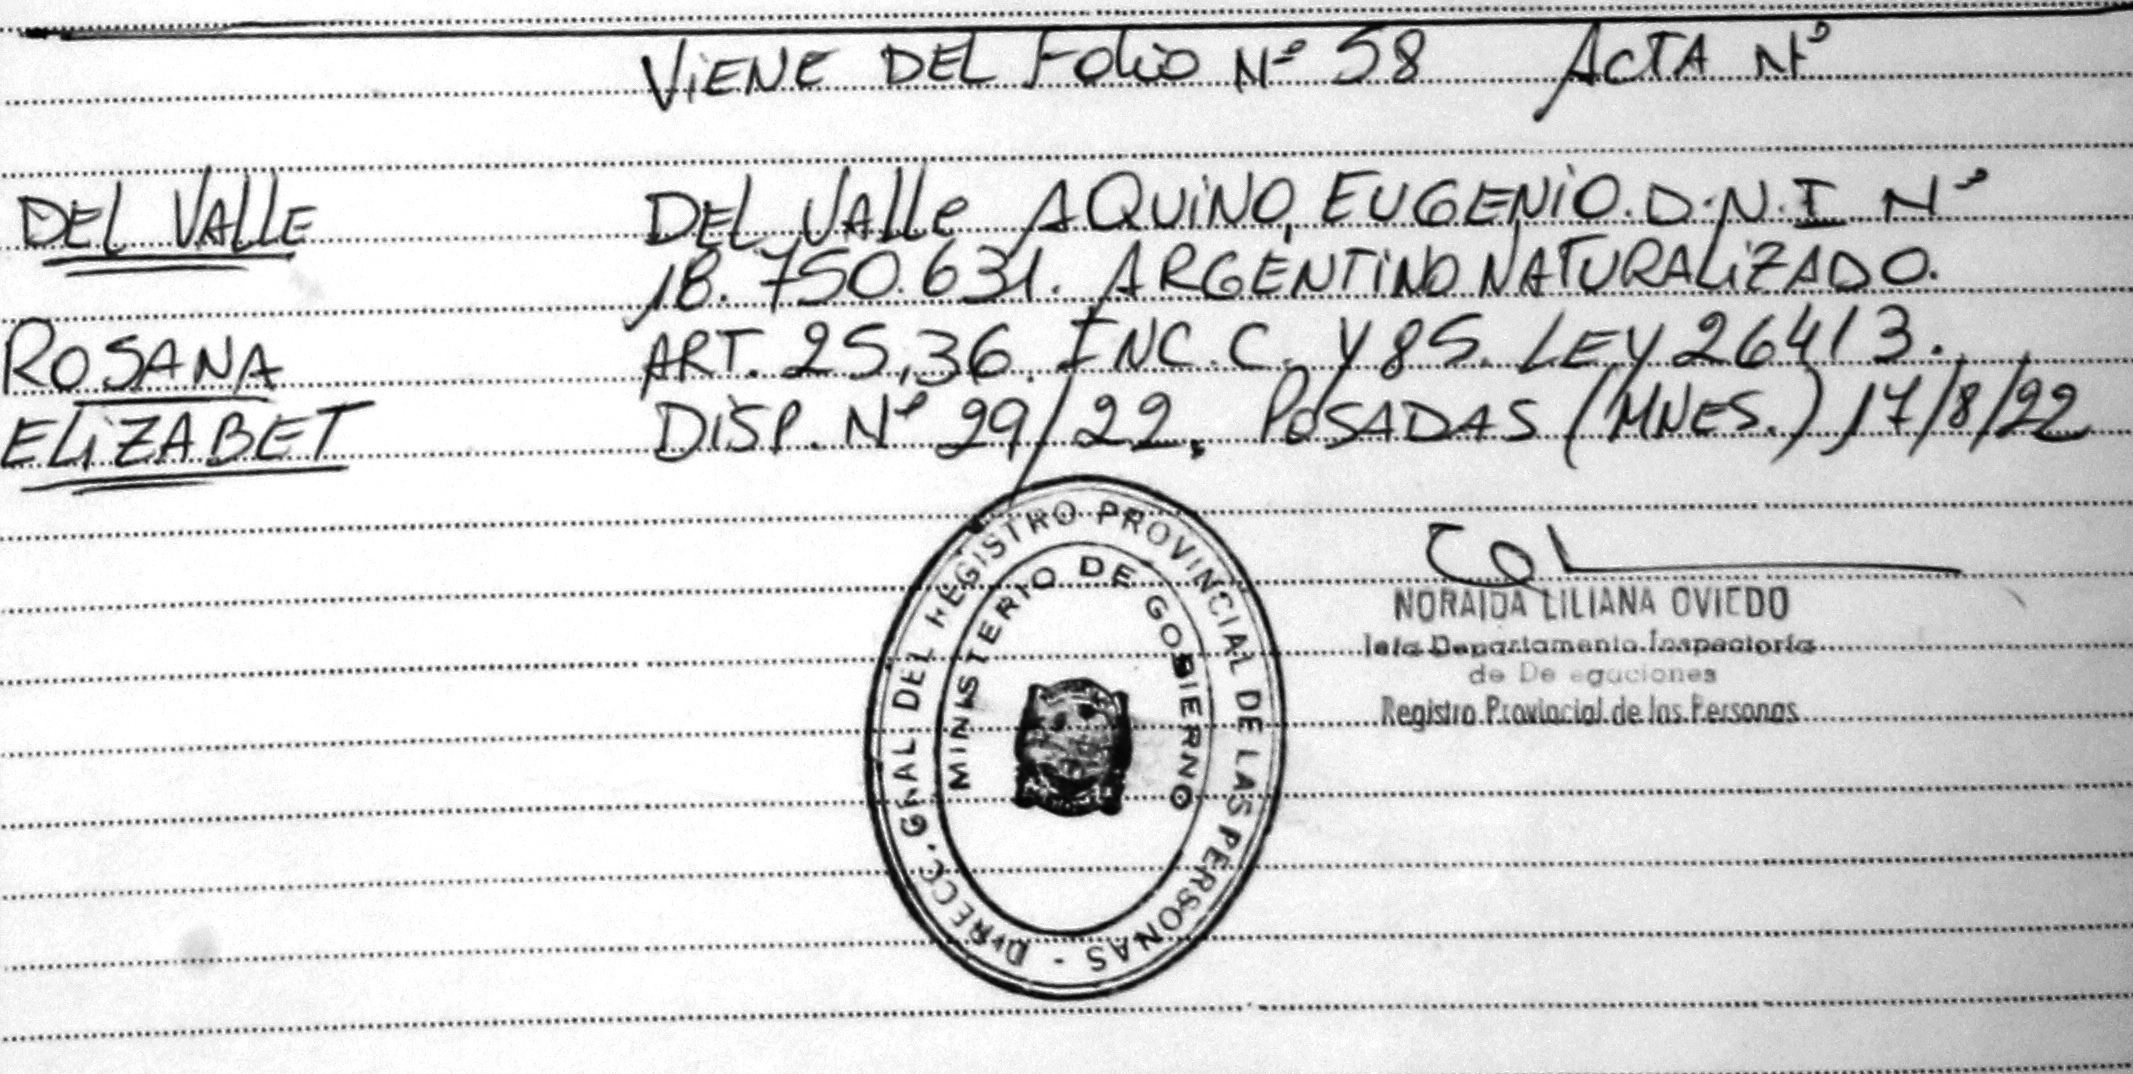 ViENE DEL Folio Nº 58 ACTA Nº
DEL VALLE
DEL VAlle AQUiNO, EUGENiO. D.N.I Nº
18.750.631. ARGENTiNO NATURALiZADO.
ROSANA
ART. 25,36. INC. C. Y 85. LEY 26413.
ELiZABET
DiSP. Nº 29/22. POSADAS (MNES.) 17/8/22
DIRECC. GRAL DEL REGISTRO PROVINCIAL DE LAS PERSONAS -
MINISTERIO DE GOBIERNO
NORAIDA LILIANA OVIEDO
Jefa Departamento Inspectoría
de De egaciones
Registro Provincial de las Personas